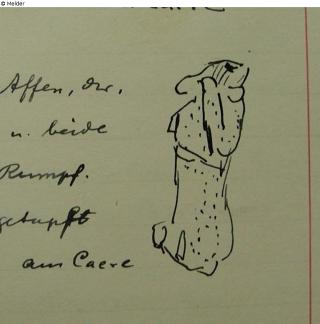 © Helder
Affen, der,
u. beide
Rumpf.
getupft
aus Caere